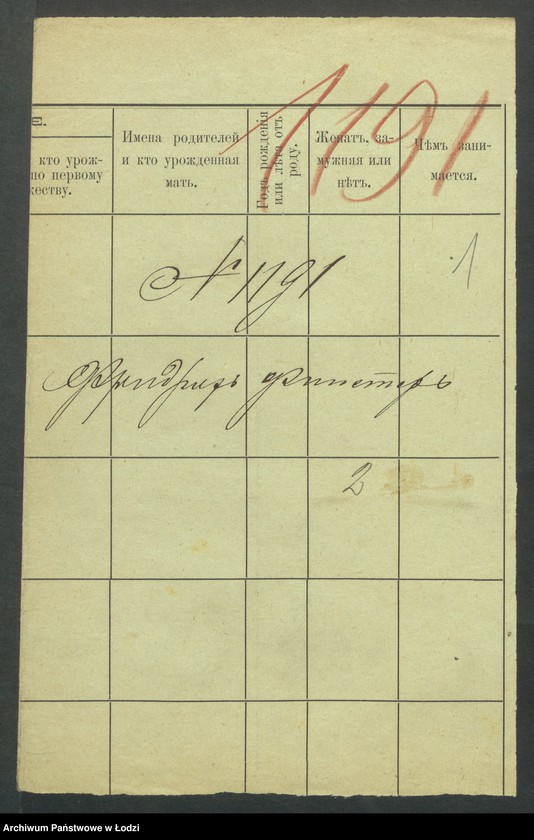 1191
Е.
кто урож-
по первому
жеству.
Имена родителей
и кто урожденная
мать.
Годъ рожденія
или лѣта отъ
роду.
Женатъ, за-
мужняя или
нѣтъ.
Чѣмъ зани-
мается.
1
N 1191
Фридрихъ Финстеръ
2
Archiwum Państwowe w Łodzi